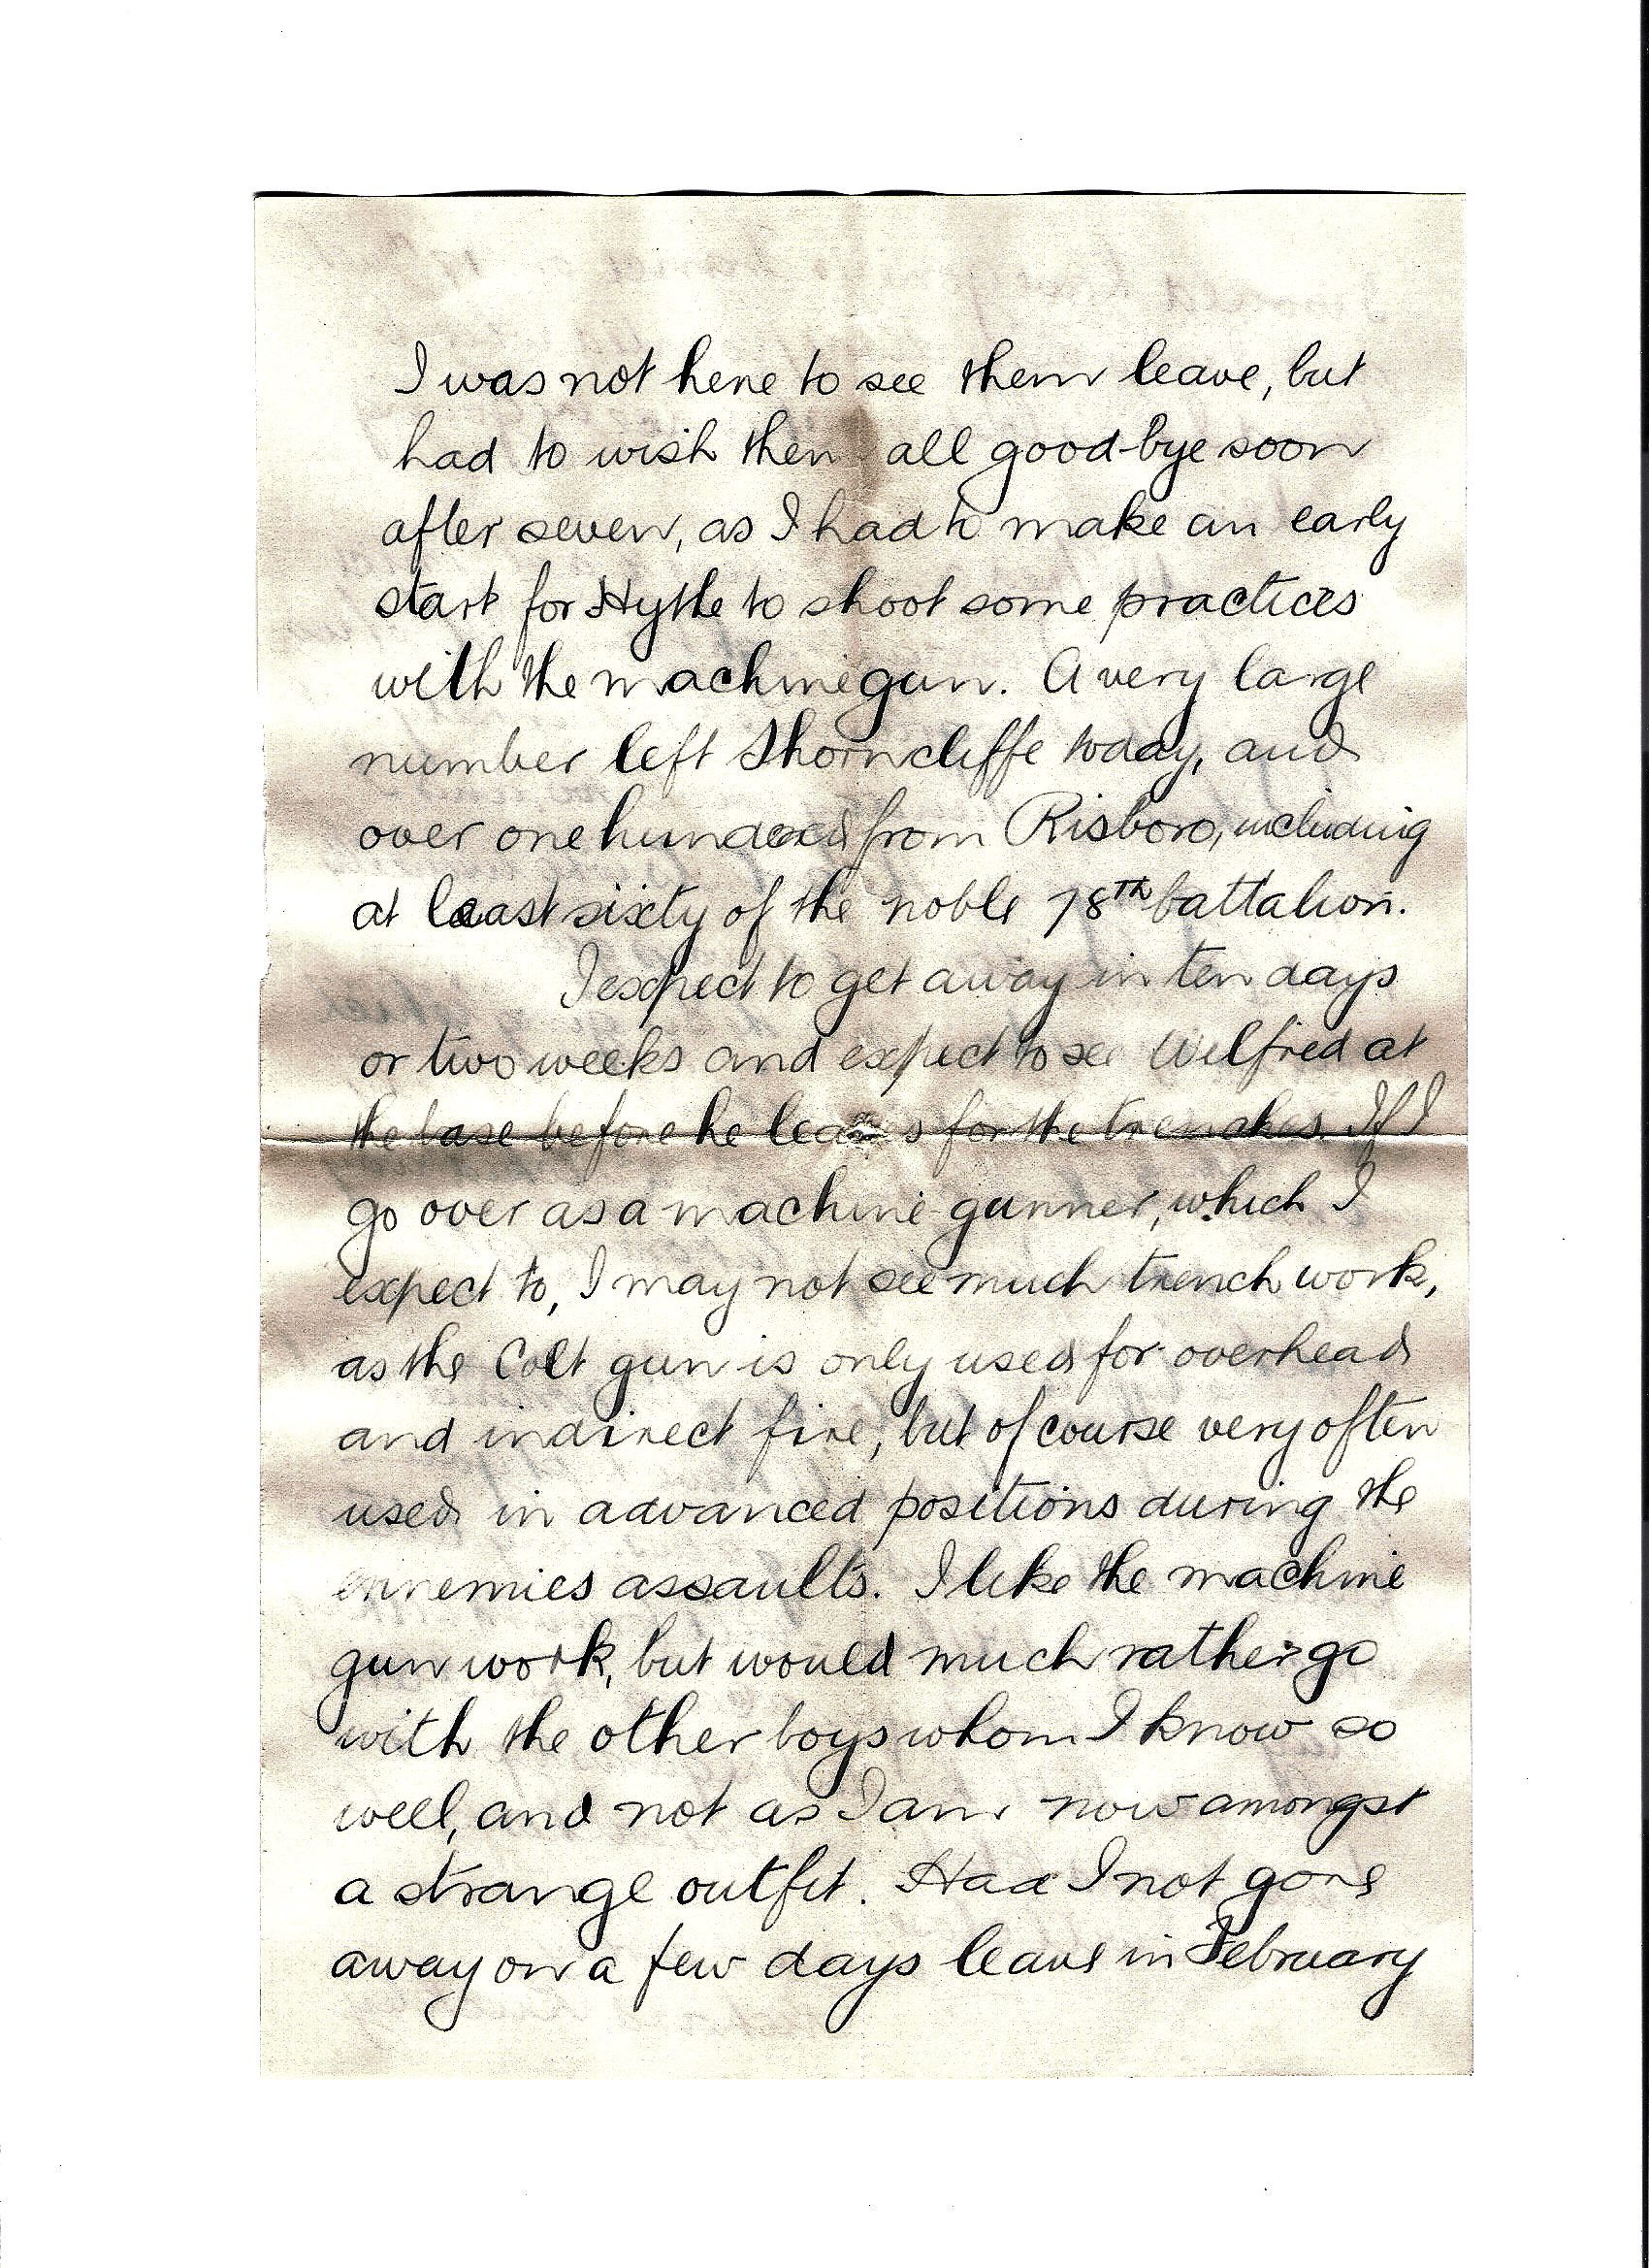 I was not here to see them leave, but
had to wish them all good-bye soon
after seven, as I had to make an early
start for Hythe to shoot some practices
with the machine gun. A very large
number left Shorncliffe today, and
over one hundred from Risboro, including
at least sixty of the noble 78th battalion.
I expect to get away in ten days
or two weeks and expect to see Wilfred at
the base before he leaves for the trenches. If I
go over as a machine gunner, which I
expect to, I may not see much trench work,
as the Colt gun is only used for overhead
and indirect fire, but of course very often
used in advanced positions during the
ennemies assaults. I like the machine
gun work, but would much rather go
with the other boys whom I know so
well, and not as I am now amongst
a strange outfit. Had I not gone
away on a few days leave in February